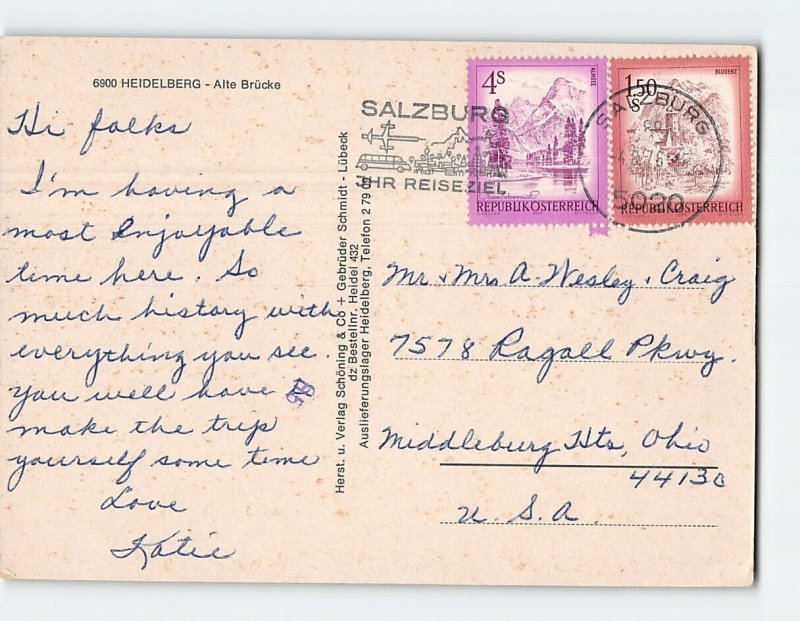 6900 HEIDELBERG - Alte Brücke
Hi folks
I'm having a
most Enjoyable
time here. So
much history with
everything you see.
You well have to
make the trip
yourself some time
Love
Katie
Herst. u. Verlag Schöning & Co + Gebrüder Schmidt - Lübeck
dz Bestellnr. Heidel 432
Auslieferungslager Heidelberg, Telefon 2 79
SALZBURG
IHR REISEZIEL
4S
ALMSEE
REPUBLIK ÖSTERREICH
1.50
S
BLUDENZ
REPUBLIK ÖSTERREICH
SALZBURG
5020
Mr. & Mrs A. Wesley & Craig
7578 Ragall Pkwy.
Middleburg Hts, Ohio
44130
U. S. A.